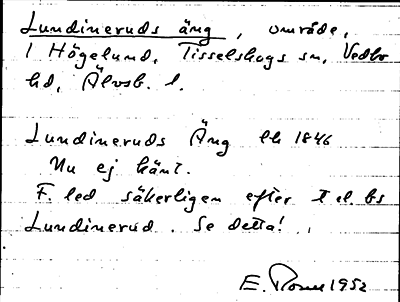 Lundineruds äng, område,
I Högelund, Tisselskogs sn, Vedbo
hd, Älvsb. l.
Lundineruds Äng lk 1846
Nu ej känt.
F. led säkerligen efter t el. bs
Lundinerud. Se detta!
E. 1952